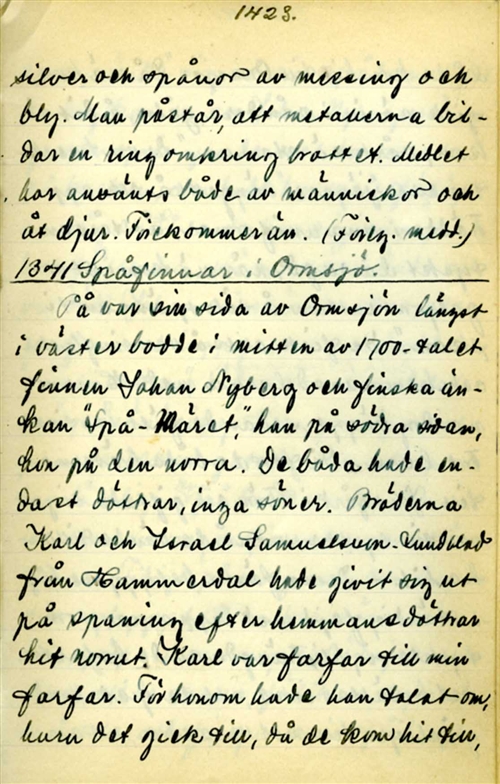 1423.
silver och spånor av messing och
bly. Man påstår, att metallerna bil-
dar en ring omkring brottet. Medlet
har använts både av människor och
åt djur. Förekommer än. (Föreg. medd.)
1341 Spåfinnar i Ormsjö.
På var sin sida av Ormsjön längst
i väster bodde i mitten av 1700-talet
finnen Johan Nyberg och finska än-
kan "Spå-Märet," han på södra sidan,
hon på den norra. De båda hade en-
dast döttrar, inga söner. Bröderna
Karl och Israel Samuelsson-Lundblad
från Hammerdal hade givit sig ut
på spaning efter hemmansdöttrar
hit norrut. Karl var farfar till min
farfar. För honom hade han talat om,
huru det gick till, då de kom hit till,